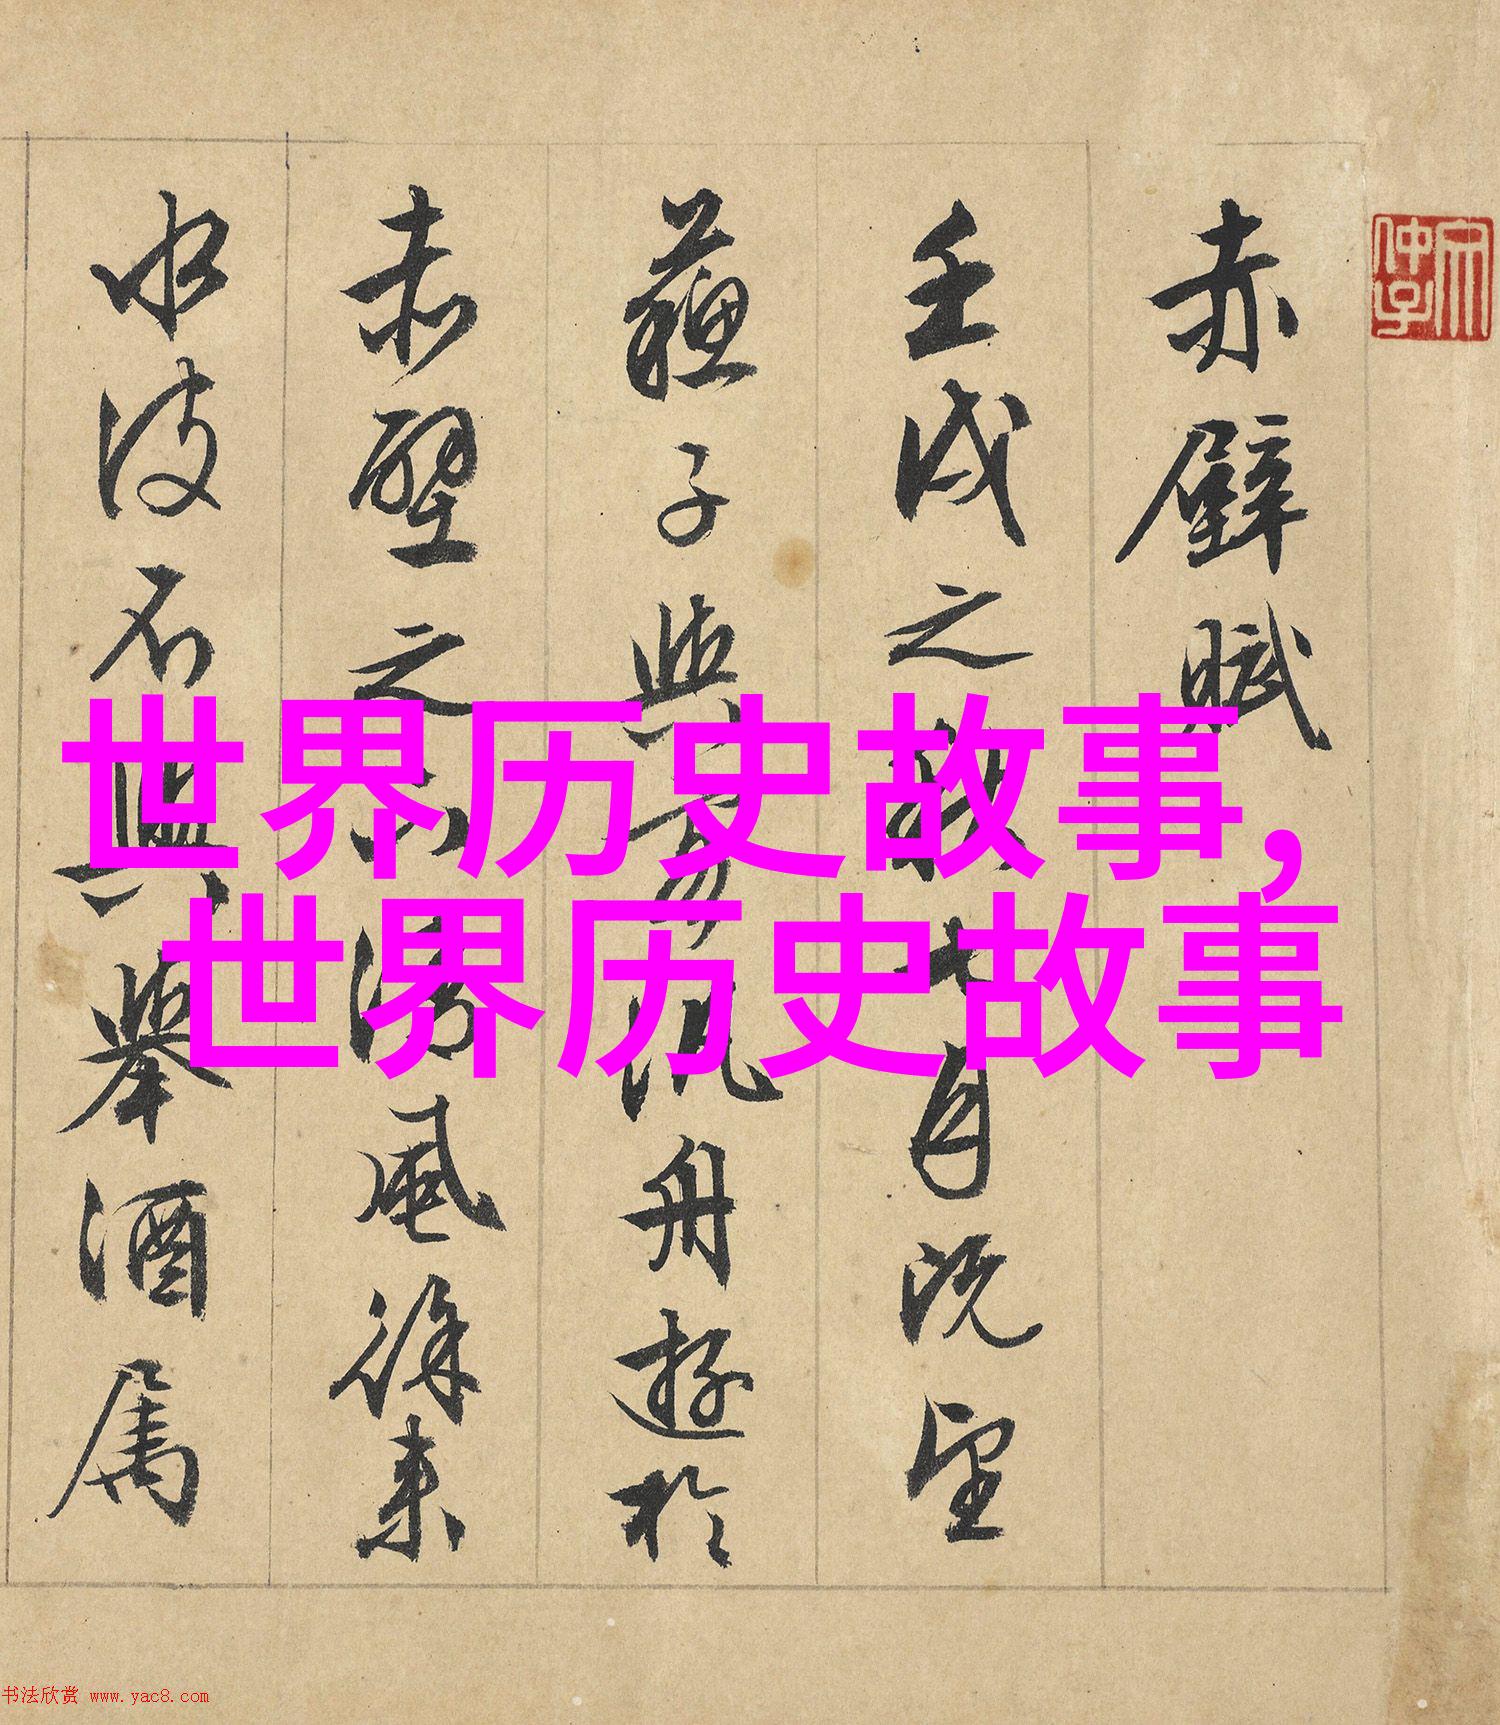 世界历史故事,
世界历史故事
赤壁賦
壬戌之秋七月既望
蘇子與客泛舟遊於
赤壁之下清風徐来
水波不興舉酒屬
书法欣赏 www.yac8.com